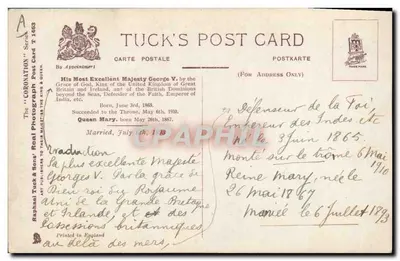 A
The "CORONATION" Series
Raphael Tuck & Sons' Real Photograph Post Card T 1463
TUCK'S POST CARD
BY APPOINTMENT
CARTE POSTALE
POSTKARTE
(FOR ADDRESS ONLY)
His Most Excellent Majesty George V. by the
Grace of God, King of the United Kingdom of Great
Britain and Ireland, and of the British Dominions
beyond the Seas, Defender of the Faith, Emperor of
India, etc.
Born, June 3rd, 1865.
Succeeded to the Throne, May 6th, 1910.
Queen Mary, born May 26th, 1867.
Married, July 6th,
Traduction
La plus excellente Majesté
Georges V. Par la grâce de
Dieu roi du Royaume
Uni de la Grande Bretagne
et Irlande, et des
possessions britanniques
au delà des mers.
Printed in England
Défenseur de la Foi,
Empereur des Indes etc
Né le 3 juin 1865
monté sur le trône 6 Mai
1910
Reine Mary, née le
26 mai 1867
Mariée le 6 juillet 1893
CPArama.com